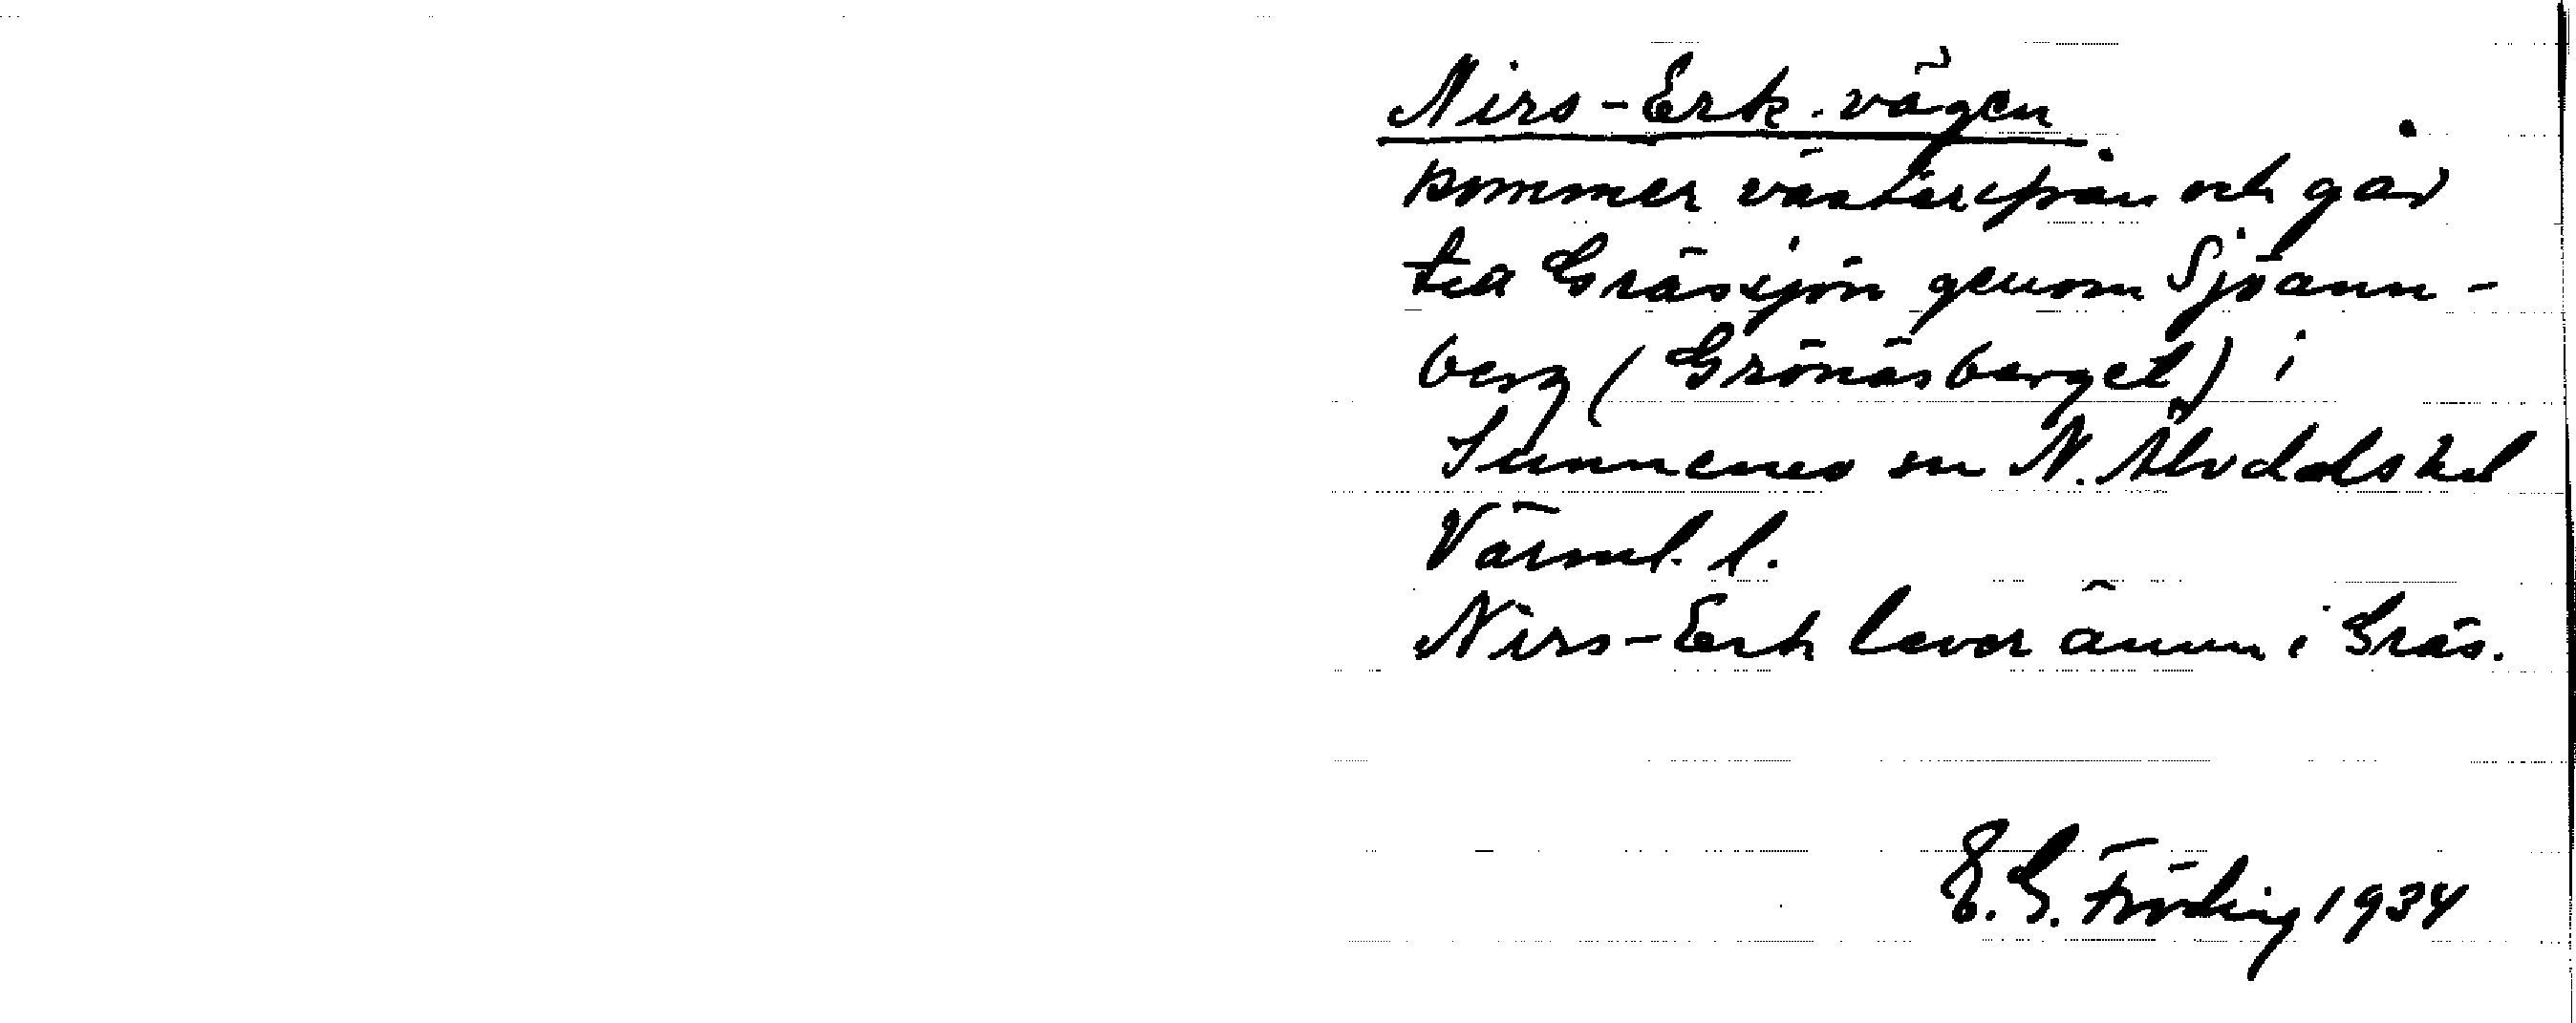 Nirs-Erk-vägen
kommer västerifrån och går
till Grässjön genom Sjöänn-
berg (Grönäsberget) i
Sunnemo sn N. Älvdals hd
Värml. l.
Nirs-Erk lever ännu i Gräs.
E. G. Fröding 1934